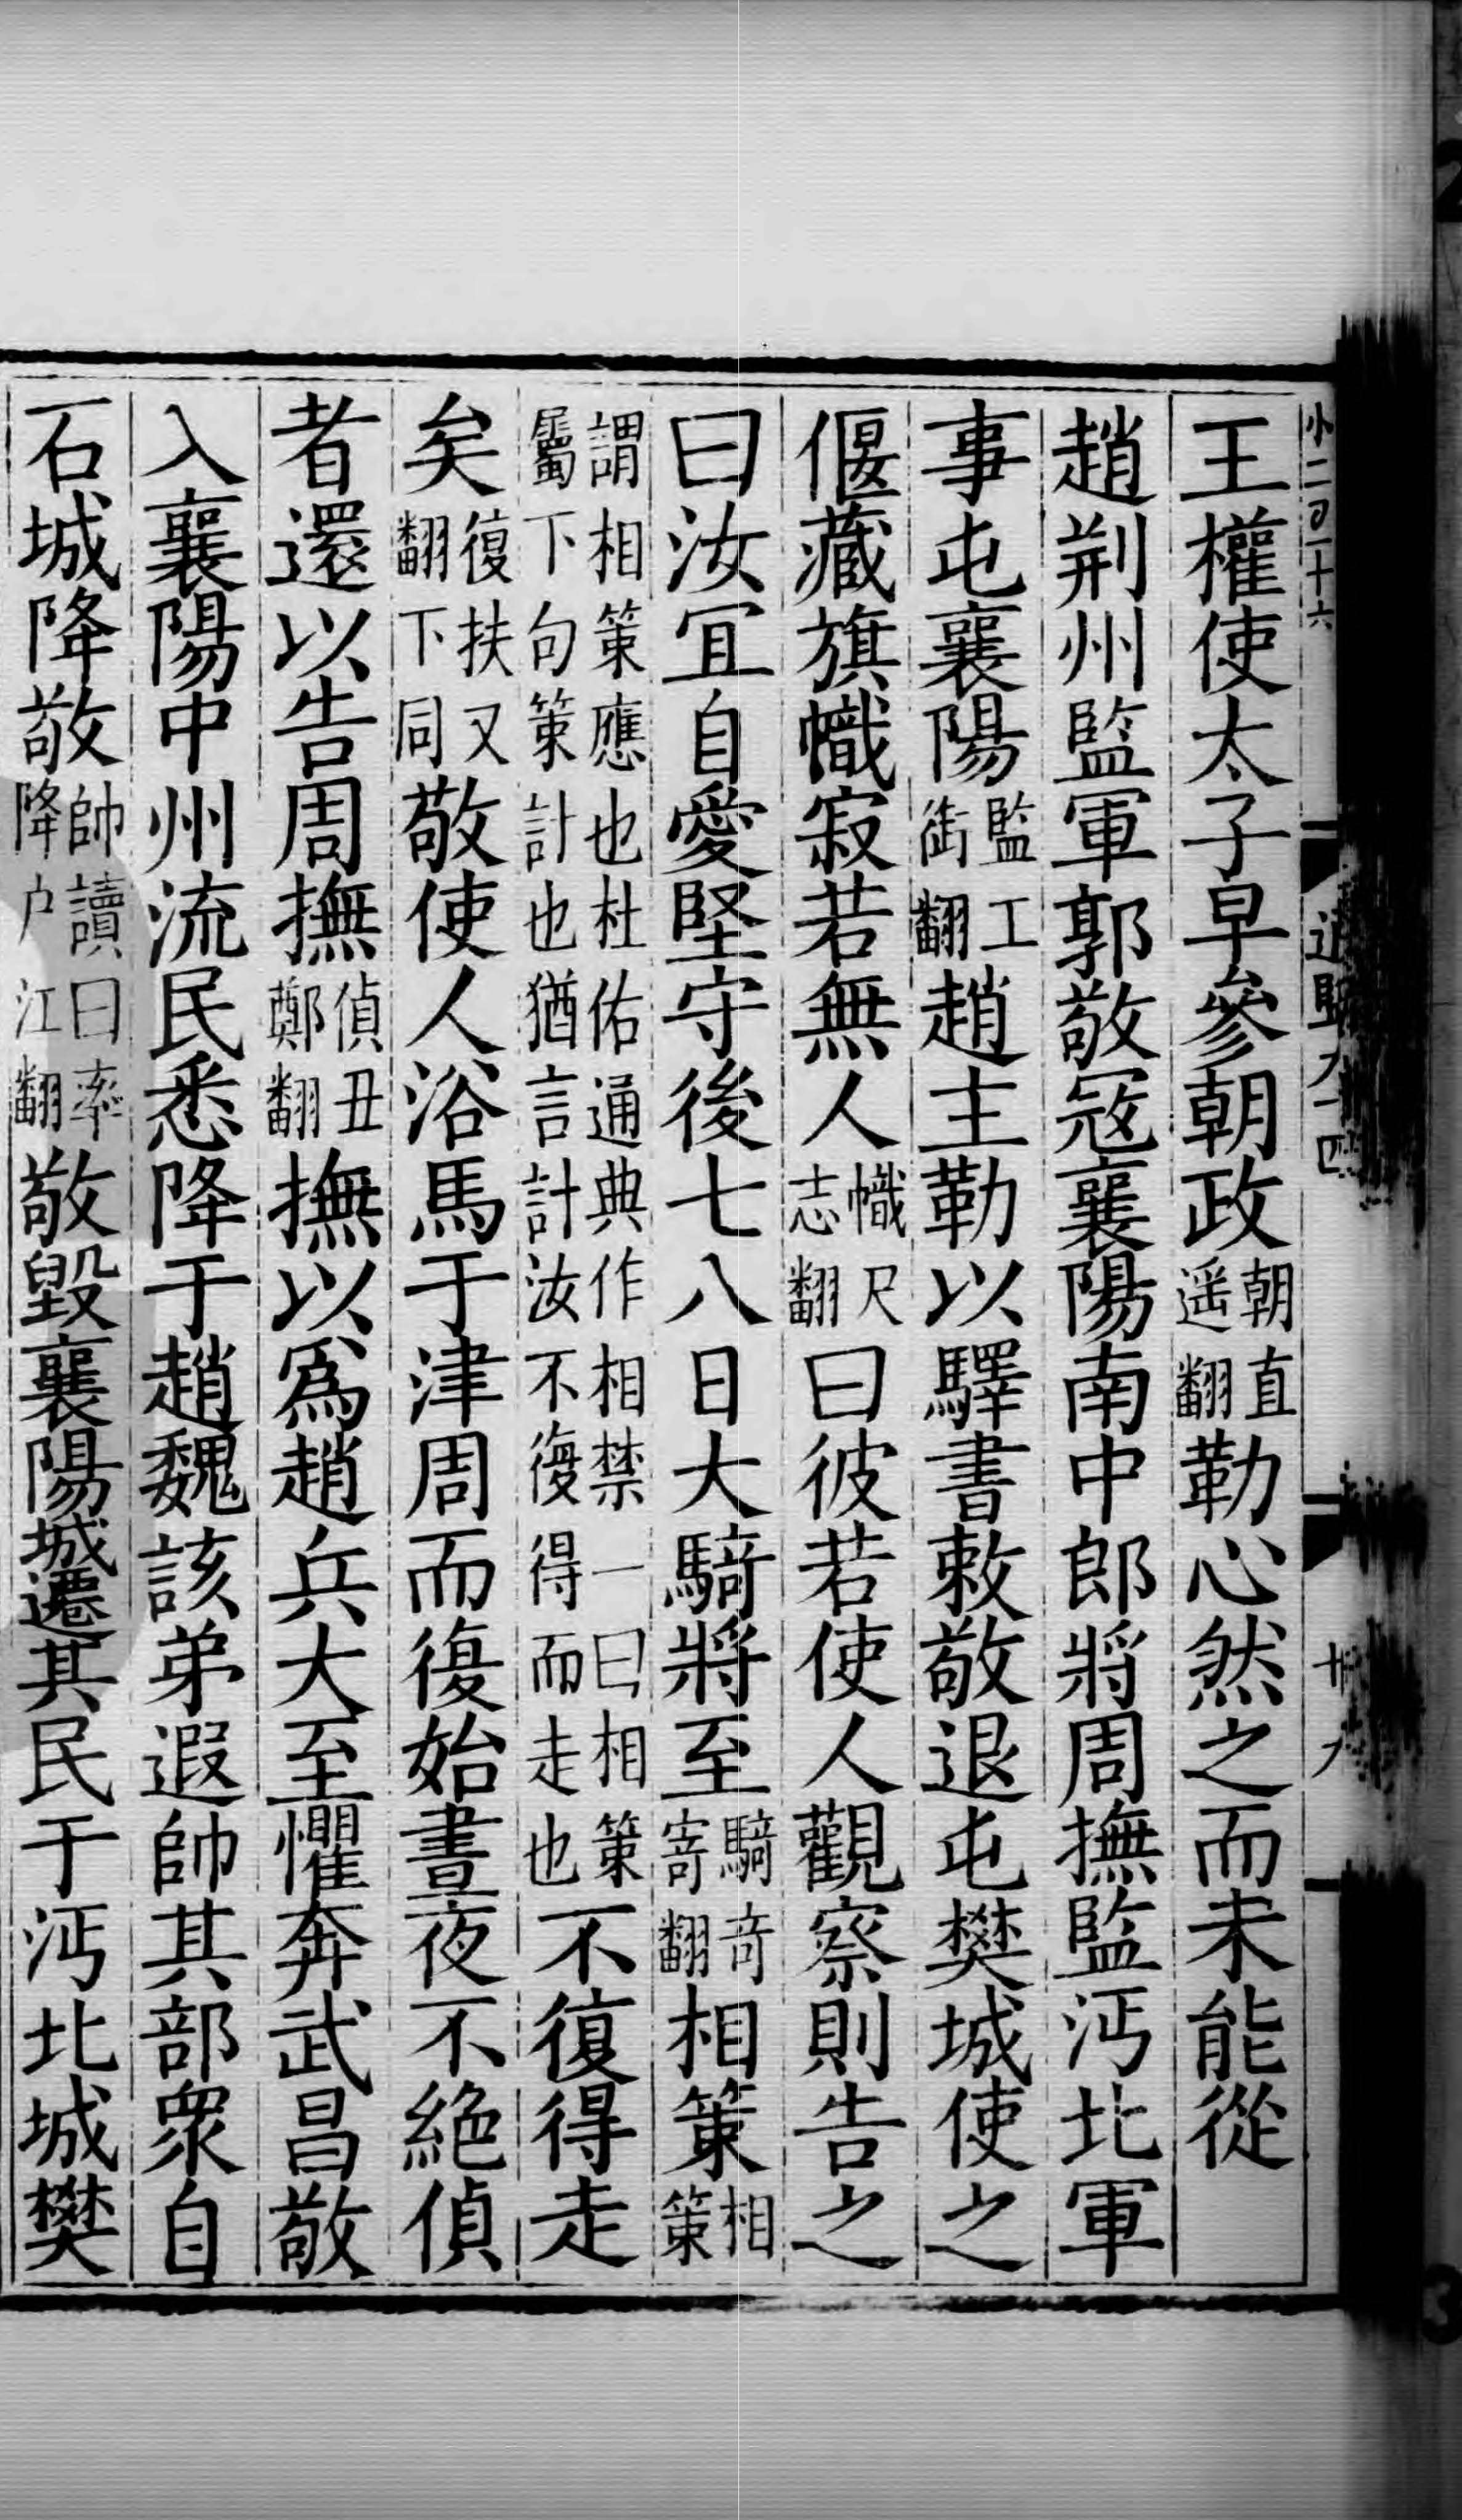 王權使太子早參朝政朝直遥翻勒心然之而未能從
趙荆州監軍郭敬寇襄陽南中郎將周撫監沔北軍
事屯襄陽監工銜翻趙主勒以驛書敕敬退屯樊城使之
偃藏旗幟寂若無人幟尺志翻曰彼若使人觀察則告之
曰汝宜自愛堅守後七八日大騎將至騎奇寄翻相策相策
謂相策應也杜佑通典作相禁一曰相策屬下句策計也猶言計汝不復得而走也不復得走
矣復扶又翻下同敬使人浴馬于津周而復始晝夜不絶偵
者還以告周撫偵丑鄭翻撫以爲趙兵大至懼奔武昌敬
入襄陽中州流民悉降于趙魏該弟遐帥其部衆自
石城降敬帥讀曰率降户江翻敬毀襄陽城遷其民于沔北城樊